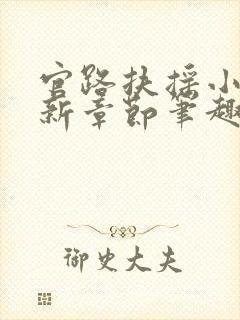 官路扶摇小
新章节笔趣
御史大夫